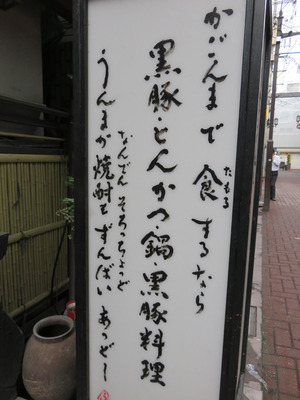 かごんまで食するなら
たもる
黒豚・とんかつ・鍋・黒豚料理
なんでん そろっちょっど
うんまか焼酎もずんばい あっどー